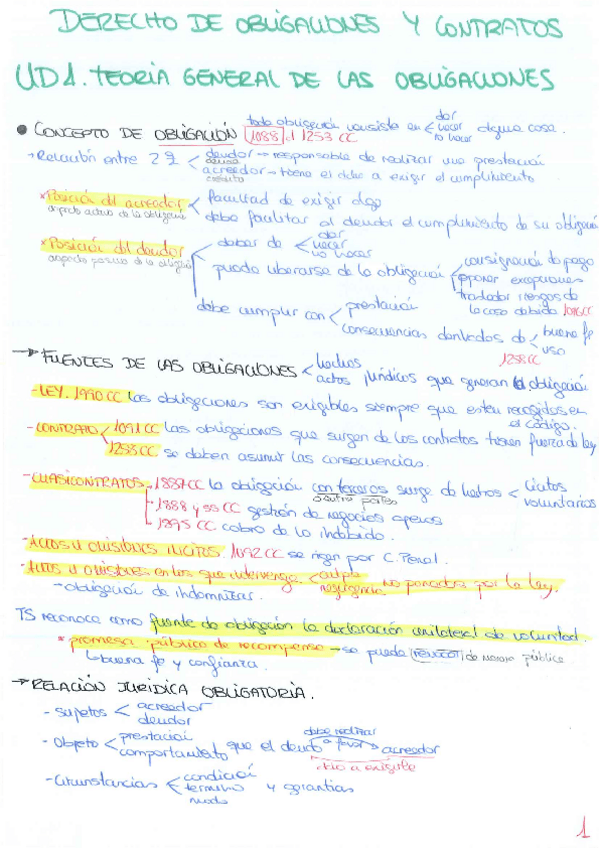 DERECHO DE OBLIGACIONES Y CONTRATOS
UD 1. TEORIA GENERAL DE LAS OBLIGACIONES
• CONCEPTO DE OBLIGACIÓN 1088 y 1253 CC
toda obligación consiste en < dar hacer no hacer alguna cosa.
- Relación entre 2 < deudor → responsable de realizar una prestación
deuda
acreedor → tiene el dcho a exigir el cumplimiento
crédito
* Posición del acreedor < facultad de exigir algo
aspecto activo de la obligación
debe facilitar al deudor el cumplimiento de su obligación
* Posición del deudor < deber de < dar hacer no hacer
aspecto pasivo de la obligación
puede liberarse de la obligación < consignación de pago
oponer excepciones
trasladar riesgos de la cosa debida 1096 CC
debe cumplir con < prestación
consecuencias derivadas de < buena fe uso
1258 CC
→ FUENTES DE LAS OBLIGACIONES < hechos actos jurídicos que generan la obligación
- LEY. 1090 CC las obligaciones son exigibles siempre que esten recogidas en el código.
- CONTRATO < 1091 CC las obligaciones que surgen de los contratos tienen fuerza de ley
1253 CC se deben asumir las consecuencias.
- CUASICONTRATOS - 1887 CC la obligación con terceros surge de hechos < lícitos voluntarios
- 1888 y ss CC gestión de negocios ajenos
- 1895 CC cobro de lo indebido.
- ACTOS U OMISIONES ILICITOS. 1092 CC se rigen por C. Penal.
- ACTOS U OMISIONES en los que intervenga < culpa negligencia no penados por la ley.
→ obligación de indemnizar.
TS reconoce como fuente de obligación la declaración unilateral de voluntad.
* promesa pública de recompensa → se puede revocar de manera pública
↳ buena fe y confianza.
→ RELACIÓN JURIDICA OBLIGATORIA.
- Sujetos < acreedor
deudor
- Objeto < prestación
comportamiento que el deudor debe realizar a favor acreedor
dcho a exigirle
- Circunstancias < condición
término y garantias
modo
1